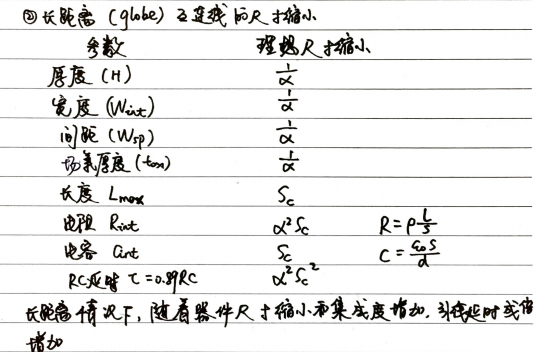 ② 长距离 (globe) 互连线的尺寸缩小
参数 理想尺寸缩小
厚度 (H) 1/α
宽度 (Wint) 1/α
间距 (Wsp) 1/α
场氧厚度 (tox) 1/α
长度 Lmax Sc
电阻 Rint α²Sc R=ρL/S
电容 Cint Sc C=ε₀S/d
RC延时 τ=0.89RC α²Sc²
长距离情况下，随着器件尺寸缩小而集成度增加，引线延时或值
增加